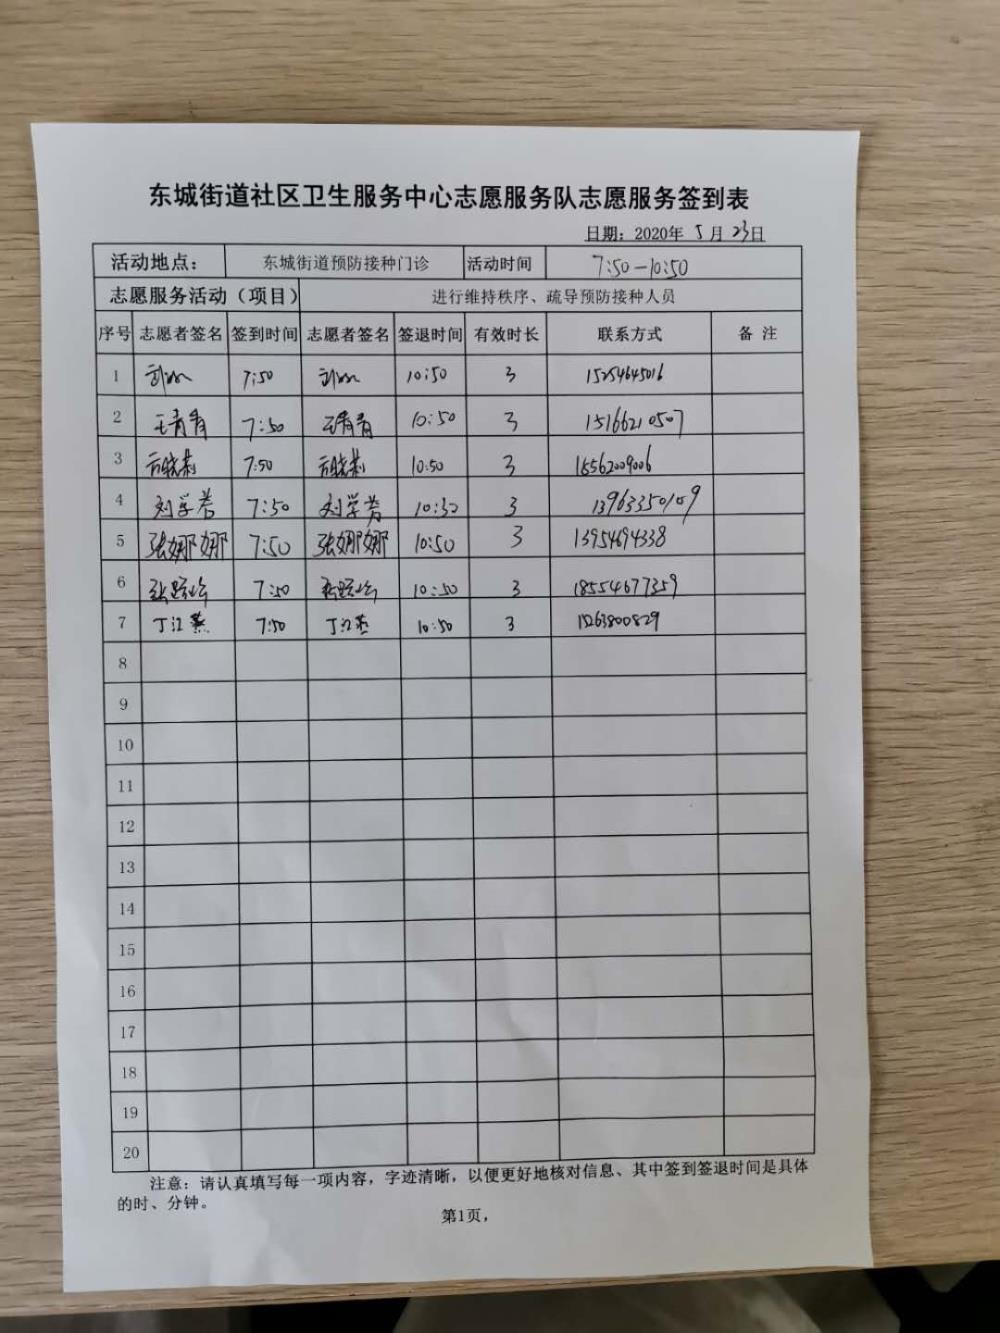 东城街道社区卫生服务中心志愿服务队志愿服务签到表
日期：2020年 5 月 23日
活动地点： 东城街道预防接种门诊 活动时间 7:50-10:50
志愿服务活动（项目） 进行维持秩序、疏导预防接种人员
序号 志愿者签名 签到时间 志愿者签名 签退时间 有效时长 联系方式 备 注
1 7:50 10:50 3 15254645016
2 王青青 7:50 王青青 10:50 3 15166210507
3 7:50 10:50 3 18562009006
4 刘学芳 7:50 刘学芳 10:30 3 13963350109
5 张娜娜 7:50 张娜娜 10:50 3 13954694338
6 7:50 10:50 3 18554677359
7 丁江燕 7:50 丁江燕 10:50 3 15263800829
8
9
10
11
12
13
14
15
16
17
18
19
20
注意：请认真填写每一项内容，字迹清晰，以便更好地核对信息、其中签到签退时间是具体
的时、分钟。
第1页，